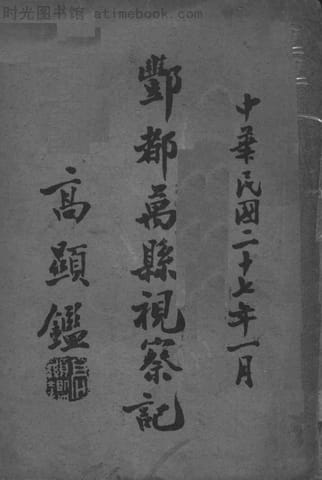 时光图书馆 - atimebook.com
中華民國二十七年一月
酆都萬縣視察記
高顯鑑